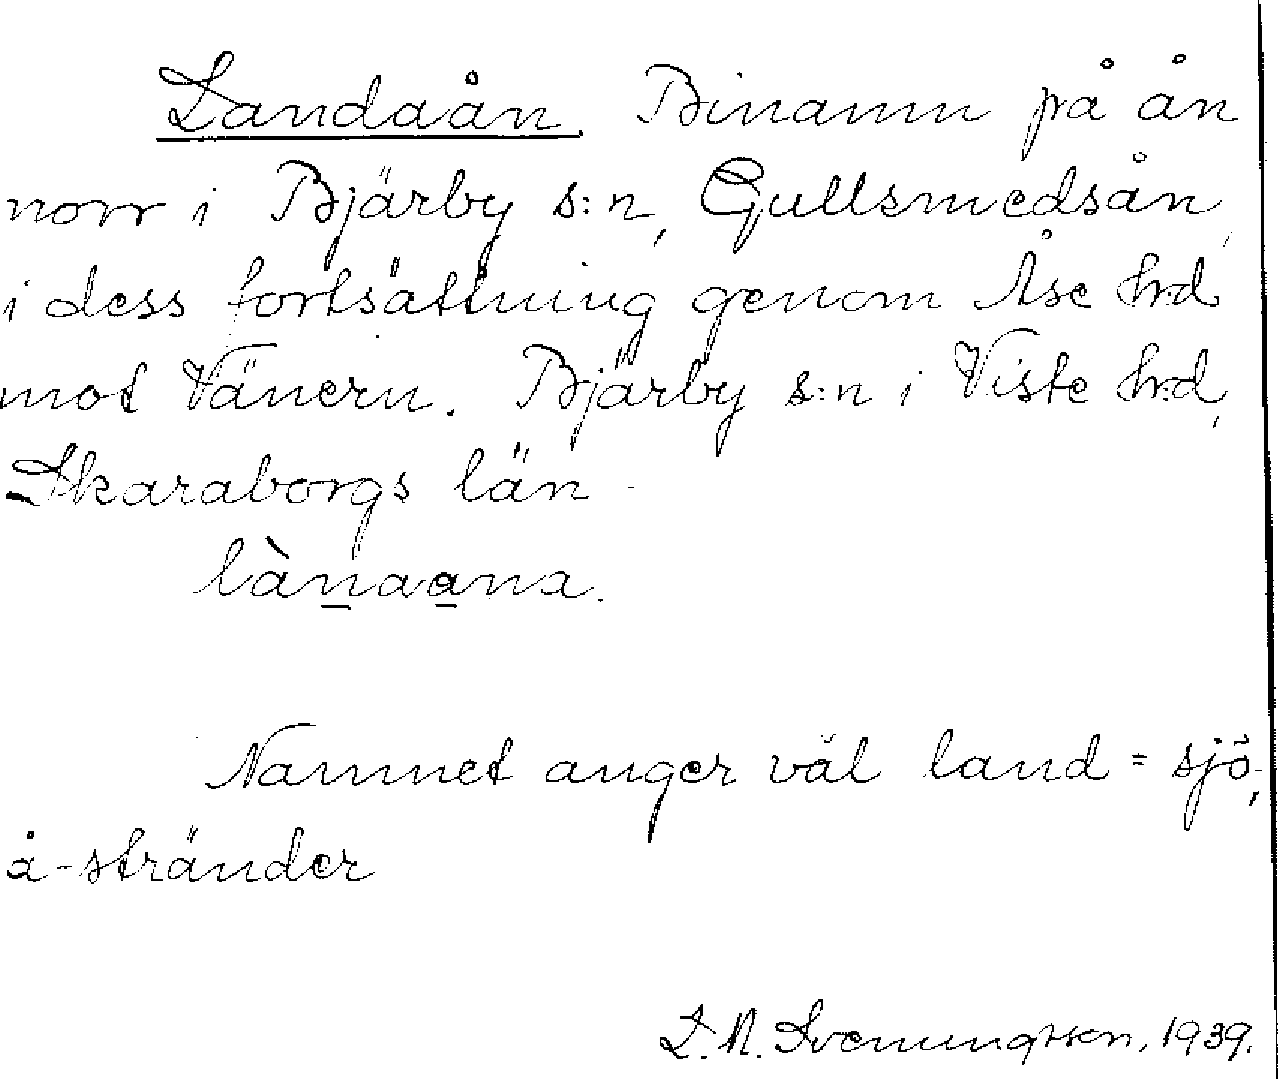 Landaån. Binamn på ån
norr i Bjärby s:n, Gullsmedsån,
i dess fortsättning genom Åse hrd
mot Vänern. Bjärby s:n i Viste hrd,
Skaraborgs län.
lànaana.
Namnet anger väl land = sjö-,
å-stränder
L. N. Svenungsson, 1939.